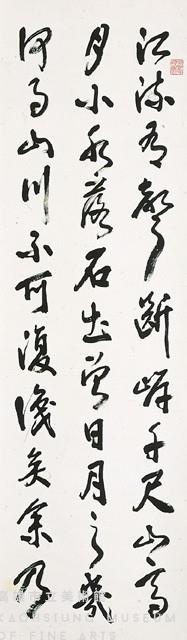 江流有聲斷岸千尺山高
月小水落石出曾日月之幾
何而山川不可復識矣余乃
高雄市立美術館
KAOHSIUNG MUSEUM
OF FINE ARTS